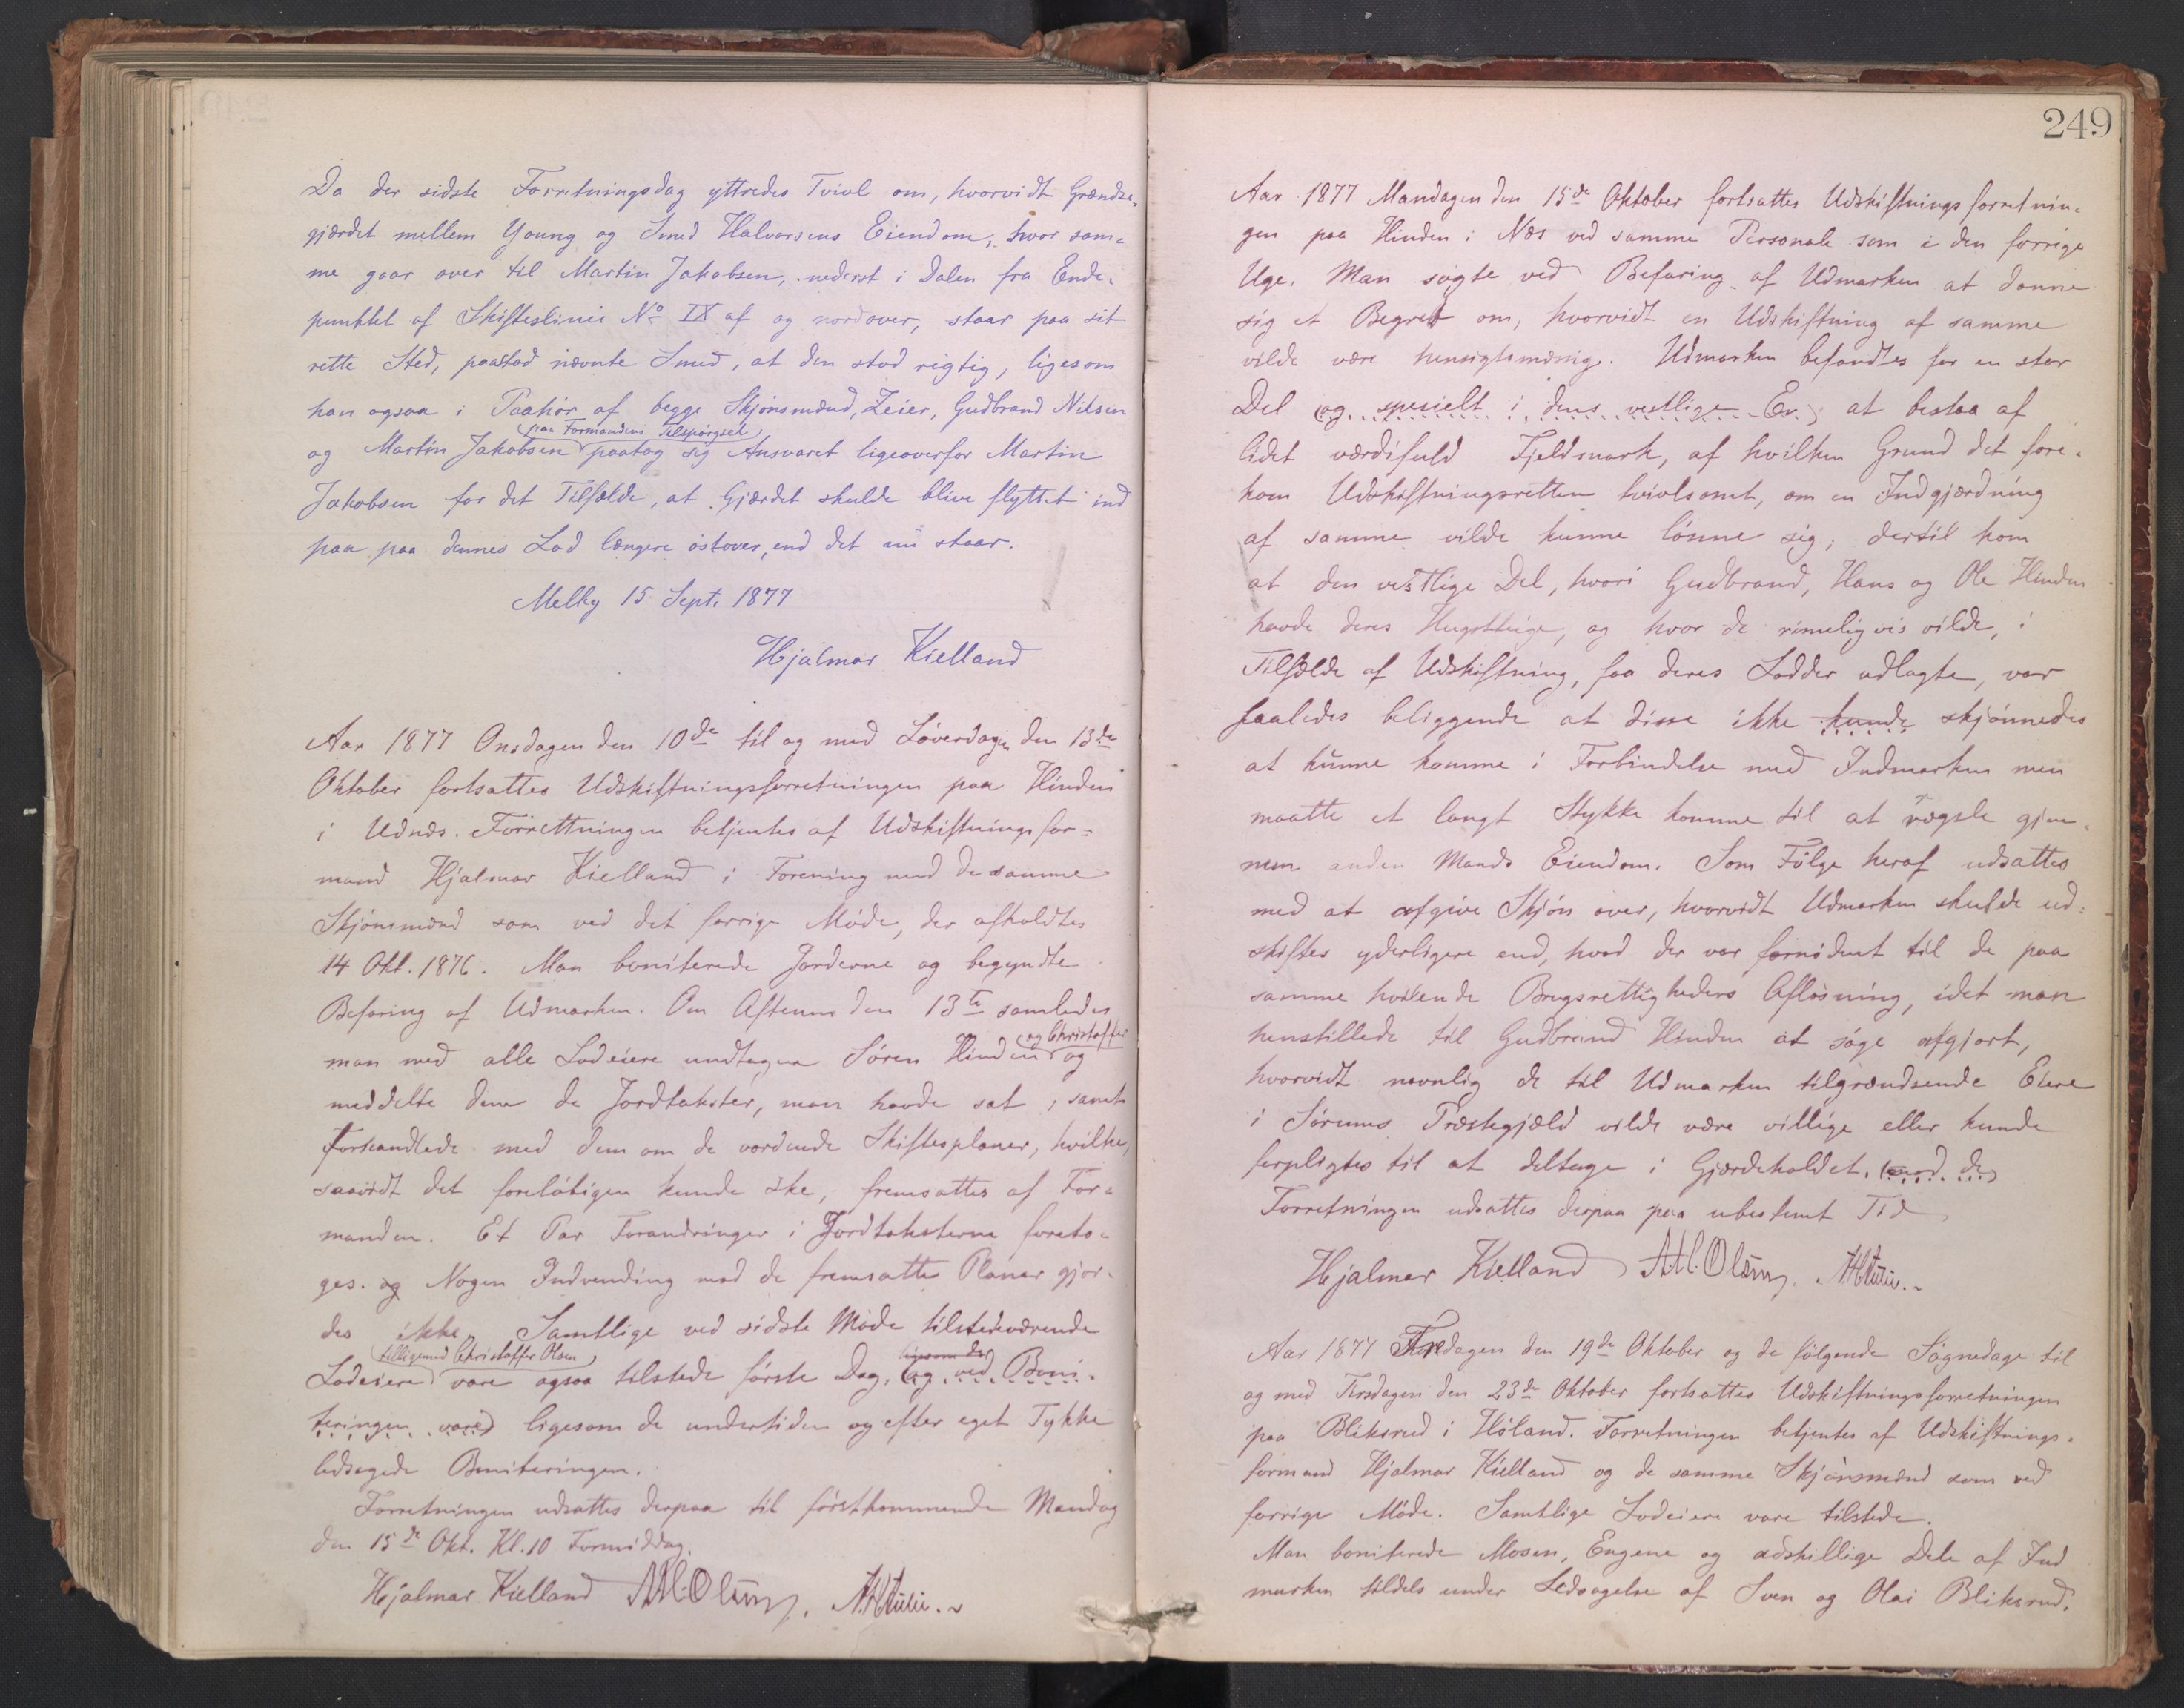 Da der sidste Forretningsdag yttredes Tvivl om, hvorvidt Grændse-
gjærdet mellem Young og Smed Halvorsens Eiendom, hvor sam-
me gaar over til Martin Jakobsen, nederst i Dalen fra Ende-
punktet af Skifteslinie No IX af og nordover, staar paa sit
rette Sted, paastod nævnte Smed, at den stod rigtig, ligesom
han ogsaa i Paahør af begge Skjønsmænd, Zeier, Gudbrand Nilsen
paa Formandens Tilspørgsel
og Martin Jakobsen paatog sig Ansvaret ligeoverfor Martin
Jakobsen for det Tilfælde, at Gjærdet skulde blive flyttet ind
paa paa dennes Lod længere østover, end det nu staar.
Melby 15 Sept. 1877
Hjalmar Kielland
Aar 1877 Onsdagen den 10de til og med Løverdagen den 13de
Oktober fortsattes Udskiftningsforretningen paa Hinden
i Udnæs. Forrettningen betjentes af Udskiftningsfor=
mand Hjalmar Kielland i Forening med de samme
Skjønsmænd som ved det forrige Møde, der afholdtes
14 Okt. 1876. Man boniterede Jorderne og begyndte
Befaring af Udmarken. Om Aftenen den 13te samledes
og Christoffer
man med alle Lodeiere undtagen Søren Hinden og
meddelte dem de Jordtakster, man havde sat, samt
forhandlede med dem om de vordende Skiftesplaner, hvilke,
saavidt det foreløbigen kunde ske, fremsattes af For-
manden. Et Par Forandringer i Jordtaksterne foreto-
ges. og Nogen Indvending mod de fremsatte Planer gjor-
des ikke. Samtlige ved sidste Møde tilstedeværende
tilligemed Christoffer Olsen ligesom de
Lodeiere vare ogsaa tilstede første Dag, (og ved Boni-
teringen vare) ligesom de undertiden og efter eget Tykke
ledsagede Boniteringen.
Forretningen udsattes derpaa til førstkommende Mandag
den 15de Okt. Kl. 10 Formiddag.
Hjalmar Kielland
249
Aar 1877 Mandagen den 15de Oktober fortsattes Udskiftningsforretnin-
gen paa Hinden i Næs ved samme Personale som i den forrige
Uge. Man søgte ved Befaring af Udmarken at danne
sig et Begreb om, hvorvidt en Udskiftning af samme
vilde være hensigtsmæssig. Udmarken befandtes for en stor
Del (og spesielt i dens vestlige En) at bestaa af
lidet værdifuld Fjeldmark, af hvilken Grund det fore-
kom Udskiftningsretten tvivlsomt, om en Indgjærdning
af samme vilde kunne lønne sig; dertil kom
at den vestlige Del, hvori Gudbrand, Hans og Ole Hinden
havde deres Hugstteige, og hvor de rimeligvis vilde, i
Tilfælde af Udskiftning, faa deres Lodder udlagte, var
saaledes beliggende at disse ikke kunde skjønnedes
at kunne komme i Forbindelse med Indmarken men
maatte et langt Stykke komme til at vægsle gjen-
nem anden Mands Eiendom. Som Følge heraf udsattes
med at afgive Skjøn over, hvorvidt Udmarken skulde ud=
skiftes yderligere end, hvad der var fornødent til de paa
samme hvilende Brugsrettigheders Afløsning, idet man
henstillede til Gudbrand Hinden at søge afgjort,
hvorvidt navnlig de til Udmarken tilgrændsende Eiere
i Sørums Præstegjæld vilde være villige eller kunde
forpligtes til at deltage i Gjærdeholdet. (mod de)
Forretningen udsattes derpaa paa ubestemt Tid
Hjalmar Kielland
Aar 1877 Fredagen den 19de Oktober og de følgende Søgnedage til
og med Tirsdagen den 23de Oktober fortsattes Udskiftningsforretningen
paa Bliksrud i Høland. Forretningen betjentes af Udskiftnings-
formand Hjalmar Kielland og de samme Skjønsmænd som ved
forrige Møde. Samtlige Lodeiere vare tilstede.
Man boniterede Mosen, Engene og adskillige Dele af Ind
marken tildels under Ledsagelse af Sven og Olai Bliksrud.